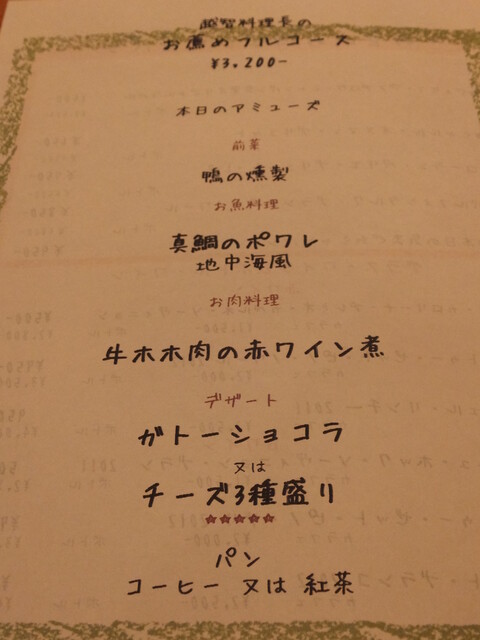 越智料理長の
お薦めフルコース
¥3.200-
本日のアミューズ
前菜
鴨の燻製
お魚料理
真鯛のポワレ
地中海風
お肉料理
牛ホホ肉の赤ワイン煮
デザート
ガトーショコラ
又は
チーズ3種盛り
★★★★★
パン
コーヒー 又は 紅茶